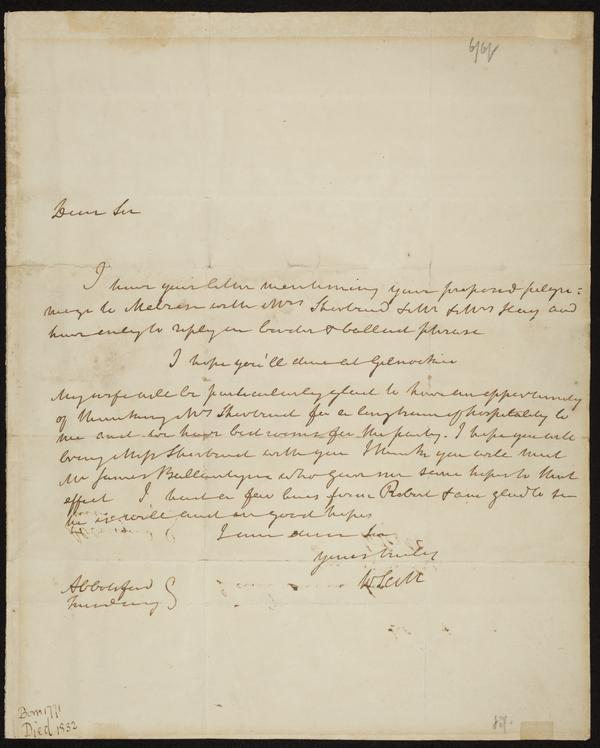 6/6/
Dear Sir
I have your letter mentioning your proposed pilgri=
mage to Melrose with Mrs Shortreed & Mr & Mrs Hay and
have only to reply in border & ballad phrase
I hope you'll dine at
My wife will be particularly glad to have an opportunity
of thanking Mrs Shortreed for a long train of hospitality to
me and we have bed rooms for the party. I hope you will
bring Miss Shortreed with you I think you will meet
Mr James Ballantyne who gave me some hopes to that
effect I had a few lines from Robert & am glad to see
he is well and in good hopes
I am dear Sir
Yours truly
W Scott
Abbotsford
Born 1771
Died 1832